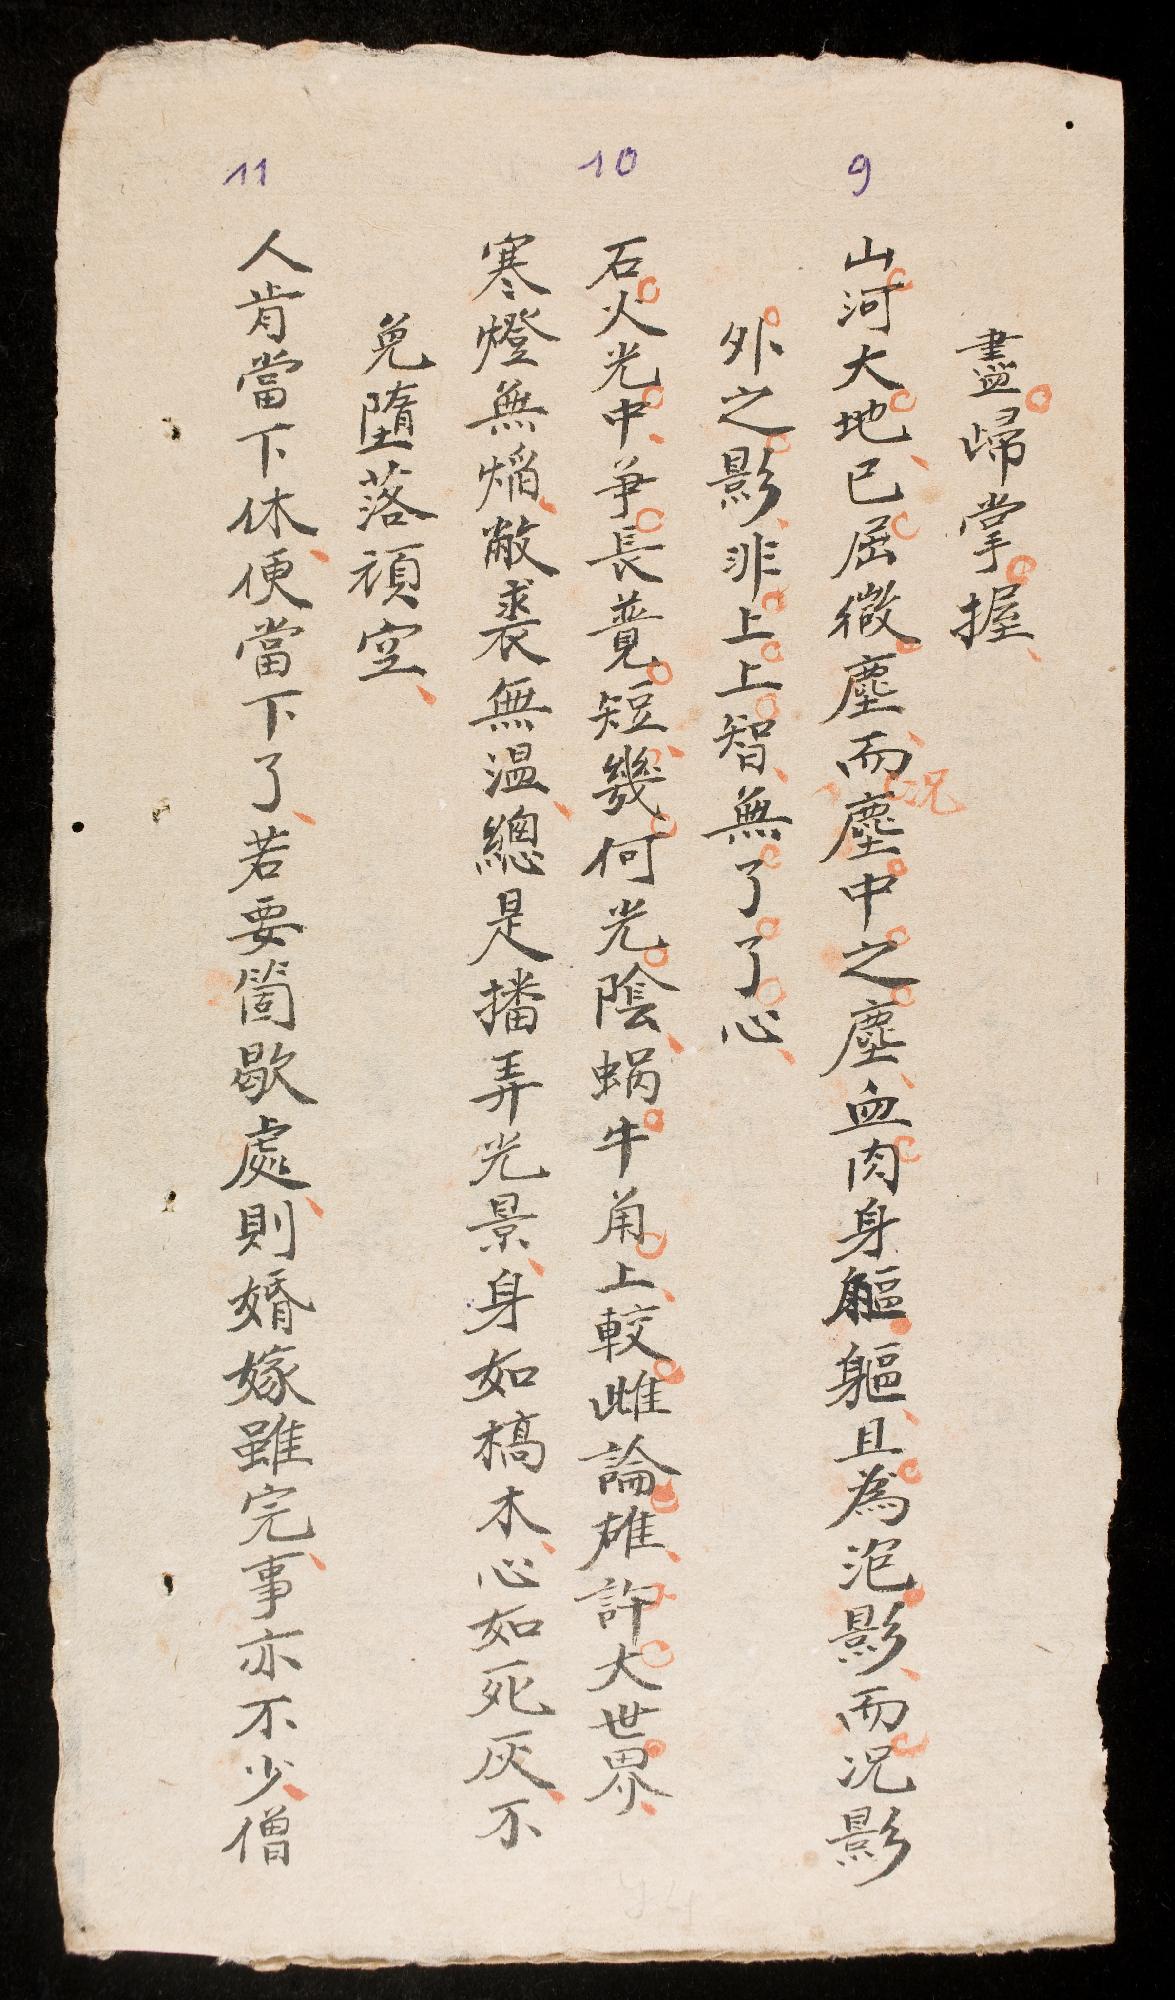 盡歸掌握、
9
山河大地、已屈微塵、而況塵中之塵、血肉身軀軀、且為泡影、而況影
外之影、非上上智、無了了心、
10
石火光中、爭長竟短、幾何光陰、蝸牛角上、較雌論雄、許大世界、
寒燈無焰、敝裘無温、總是播弄光景、身如槁木、心如死灰、不
免墮落頑空、
11
人肯當下休、便當下了、若要箇歇處、則婚嫁雖完、事亦不少、僧